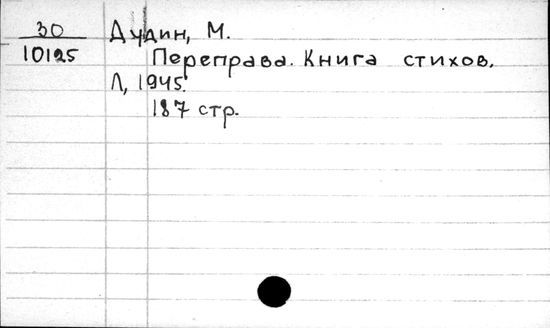 30
10125
Дудин, М.
Переправа. Книга стихов.
Л, 1945.
187 стр.